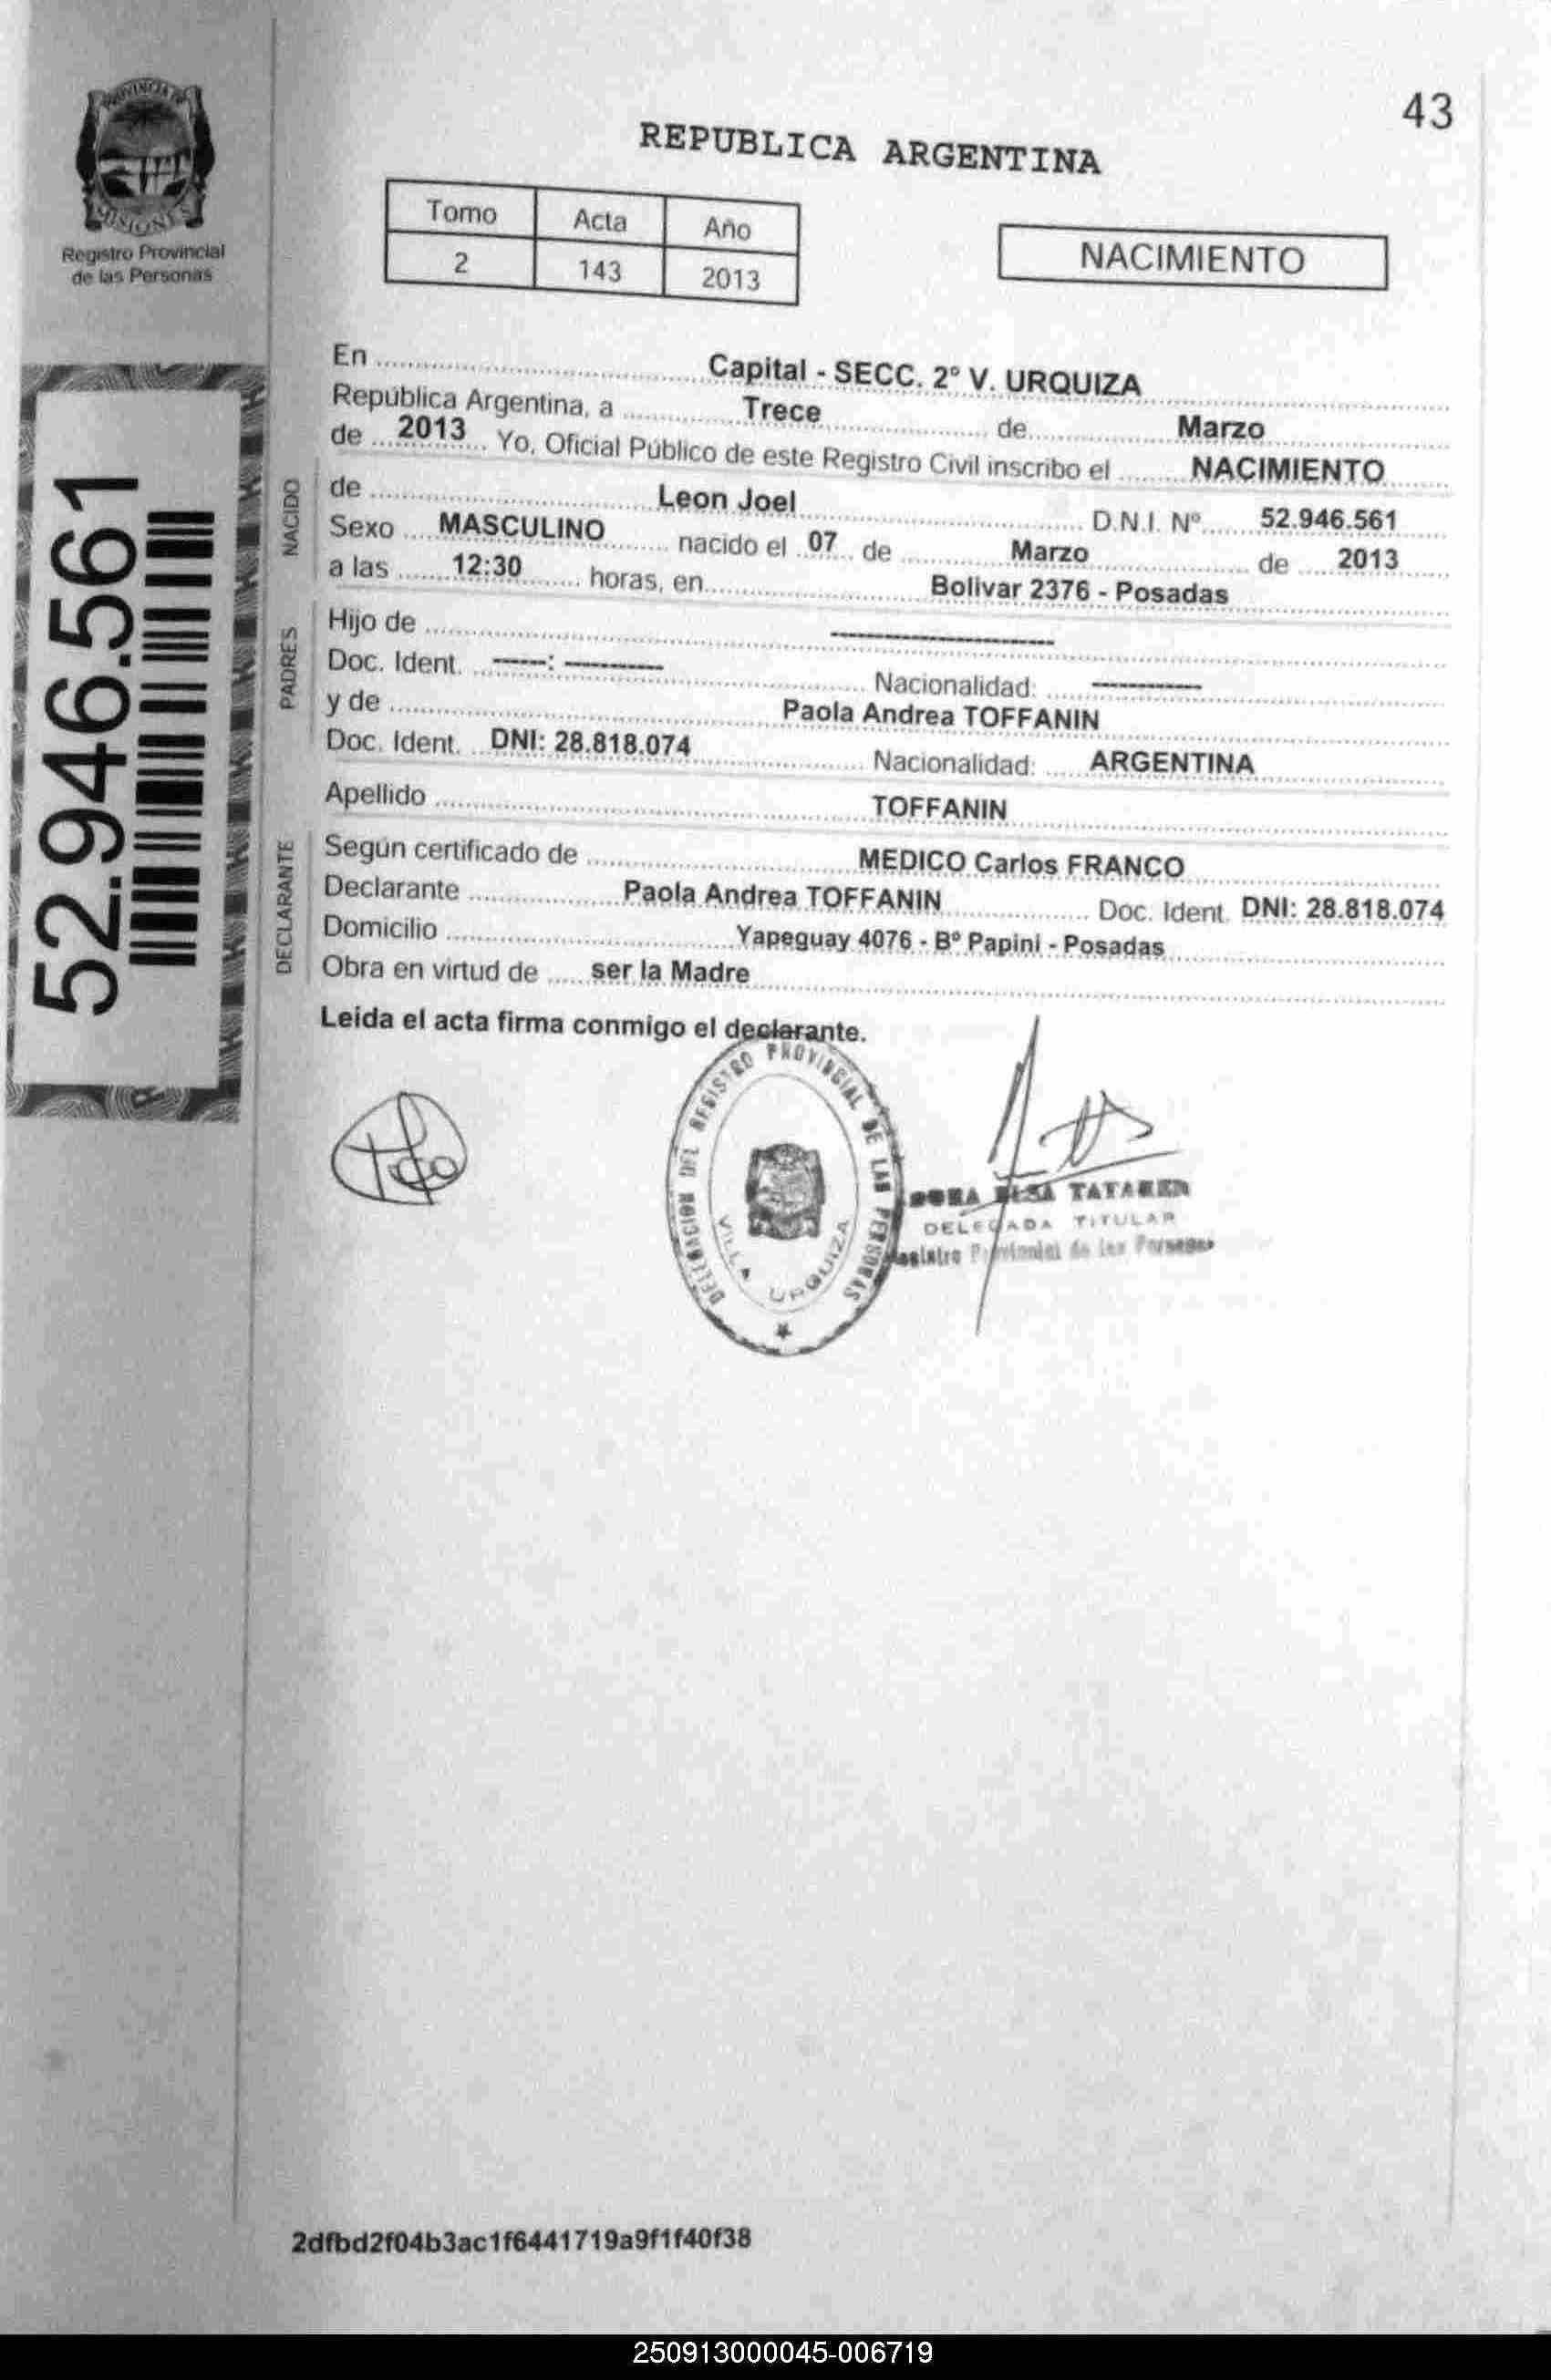 43
REPUBLICA ARGENTINA
PROVINCIA DE
MISIONES
Registro Provincial
de las Personas
Tomo Acta Año
2 143 2013
NACIMIENTO
52.946.561
En Capital - SECC. 2° V. URQUIZA
República Argentina, a Trece de Marzo
de 2013 Yo, Oficial Público de este Registro Civil inscribo el NACIMIENTO
NACIDO
de Leon Joel D.N.I. Nº 52.946.561
Sexo MASCULINO nacido el 07 de Marzo de 2013
a las 12:30 horas, en Bolivar 2376 - Posadas
PADRES
Hijo de --------------------
Doc. Ident. -----: --------- Nacionalidad: ----------
y de Paola Andrea TOFFANIN
Doc. Ident. DNI: 28.818.074 Nacionalidad: ARGENTINA
Apellido TOFFANIN
DECLARANTE
Según certificado de MEDICO Carlos FRANCO
Declarante Paola Andrea TOFFANIN Doc. Ident. DNI: 28.818.074
Domicilio Yapeguay 4076 - Bº Papini - Posadas
Obra en virtud de ser la Madre
Leida el acta firma conmigo el declarante.
DELEGACION DEL REGISTRO PROVINCIAL DE LAS PERSONAS
VILLA URQUIZA
ELSA
DELEGADA TITULAR
Registro Provincial de las Personas
2dfbd2f04b3ac1f6441719a9f1f40f38
250913000045-006719